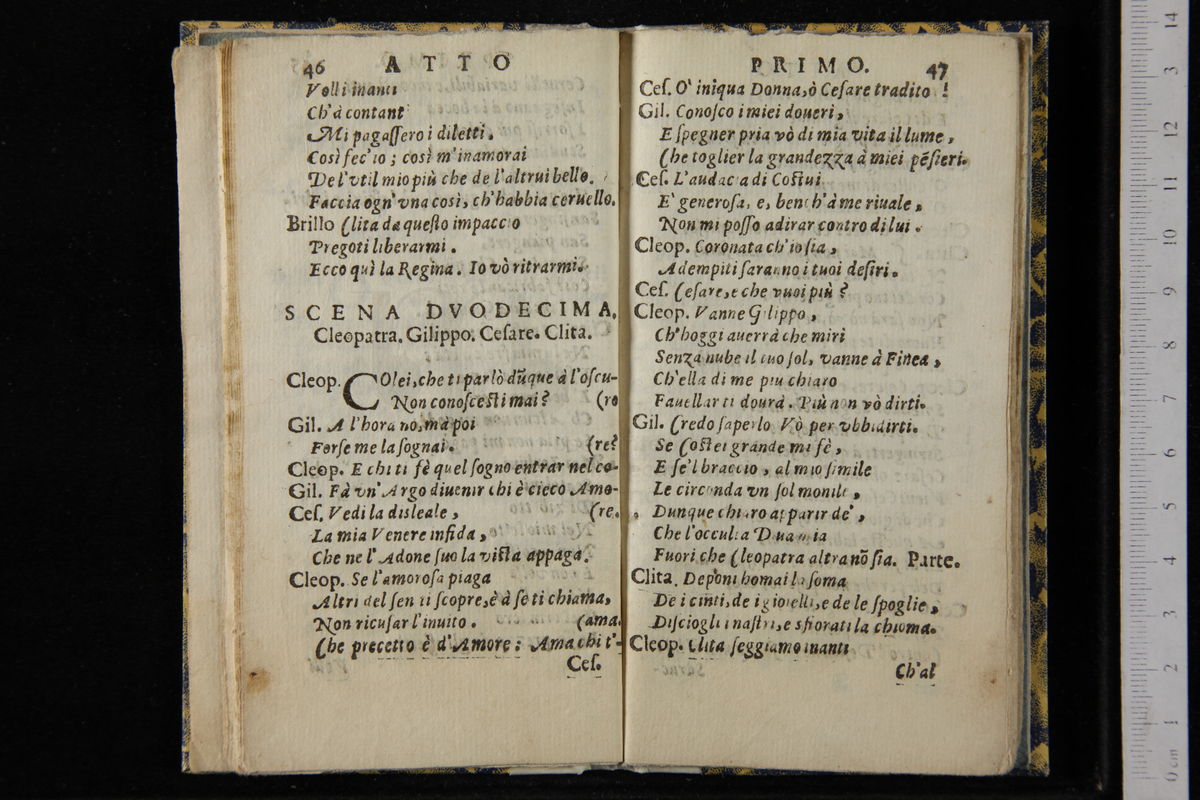 46 ATTO
Volli inanti
Ch'à contanti
Mi pagaſſero i diletti.
Così fec'io; così m'inamorai
De l'vtil mio più che de l'altrui bello.
Faccia ogn'vna così, ch'habbia ceruello.
Brillo Clita da queſto impaccio
Pregoti liberarmi.
Ecco quì la Regina. Io vò ritrarmi.
SCENA DVODECIMA.
Cleopatra. Gilippo. Ceſare. Clita.
Cleop. COlei, che ti parlò dũque à l'oſcu-
Non conoſceſti mai? (ro
Gil. A l'hora no, mà poi
Forſe me la ſognai. (re?
Cleop. E chi ti fè quel ſogno entrar nel co-
Gil. Fà vn'Argo diuenir chi è cieco Amo-
Ceſ. Vedi la disleale, (re.
La mia Venere infida,
Che ne l'Adone ſuo la viſta appaga.
Cleop. Se l'amoroſa piaga
Altri del ſen ti ſcopre, è à ſe ti chiama,
Non ricuſar l'inuito. (ama.
Che precetto è d'Amore: Ama chi t'-
Ceſ.
PRIMO. 47
Ceſ. O' iniqua Donna, ò Ceſare tradito!
Gil. Conoſco i miei doueri,
E ſpegner pria vò di mia vita il lume,
Che toglier la grandezza à miei pẽſieri.
Ceſ. L'audacia di Coſtui
E' generoſa, e, bench'à me riuale,
Non mi poſſo adirar contro di lui.
Cleop. Coronata ch'io ſia,
Adempiti ſaranno i tuoi deſiri.
Ceſ. Ceſare, e che vuoi più?
Cleop. Vanne Gilippo,
Ch'hoggi auerrà che miri
Senza nube il tuo ſol, vanne à Finea,
Ch'ella di me piu chiaro
Fauellarti dourà. Più non vò dirti.
Gil. Credo ſaperlo. Vò per vbbidirti.
Se Coſtei grande mi fè,
E ſe'l braccio, al mio ſimile
Le circonda vn ſol monile,
Dunque chiaro apparir de',
Che l'occulta Dua mia
Fuori che Cleopatra altra nõ ſia. Parte.
Clita. Deponi homai la ſoma
De i cinti, de i gioielli, e de le ſpoglie,
Diſciogli i naſtri, e sfiorati la chioma.
Cleop. Clita ſeggiamo inanti
Ch'al